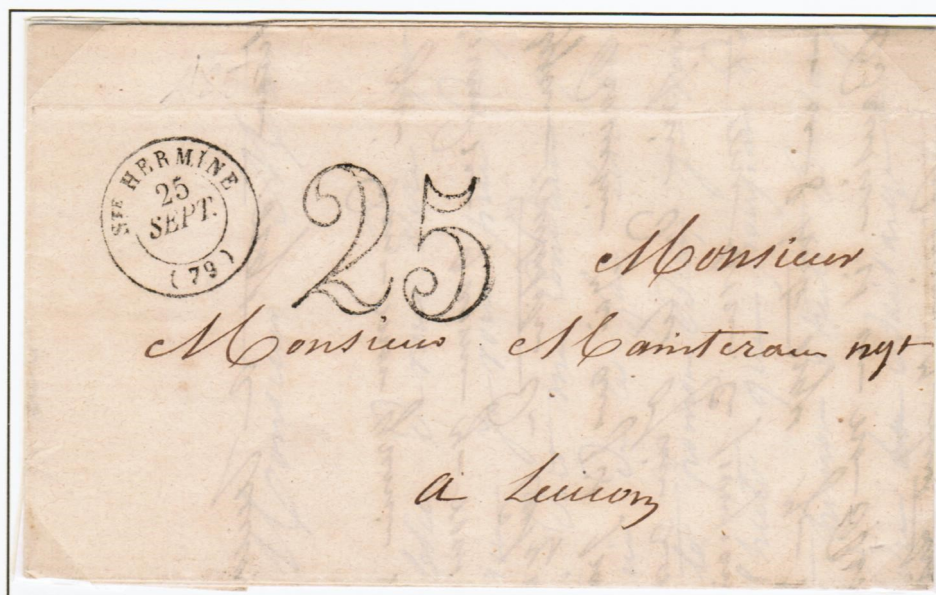 STE HERMINE
25
SEPT.
(79)
25
Monsieur
Monsieur Mainterau ngt
a Luçon